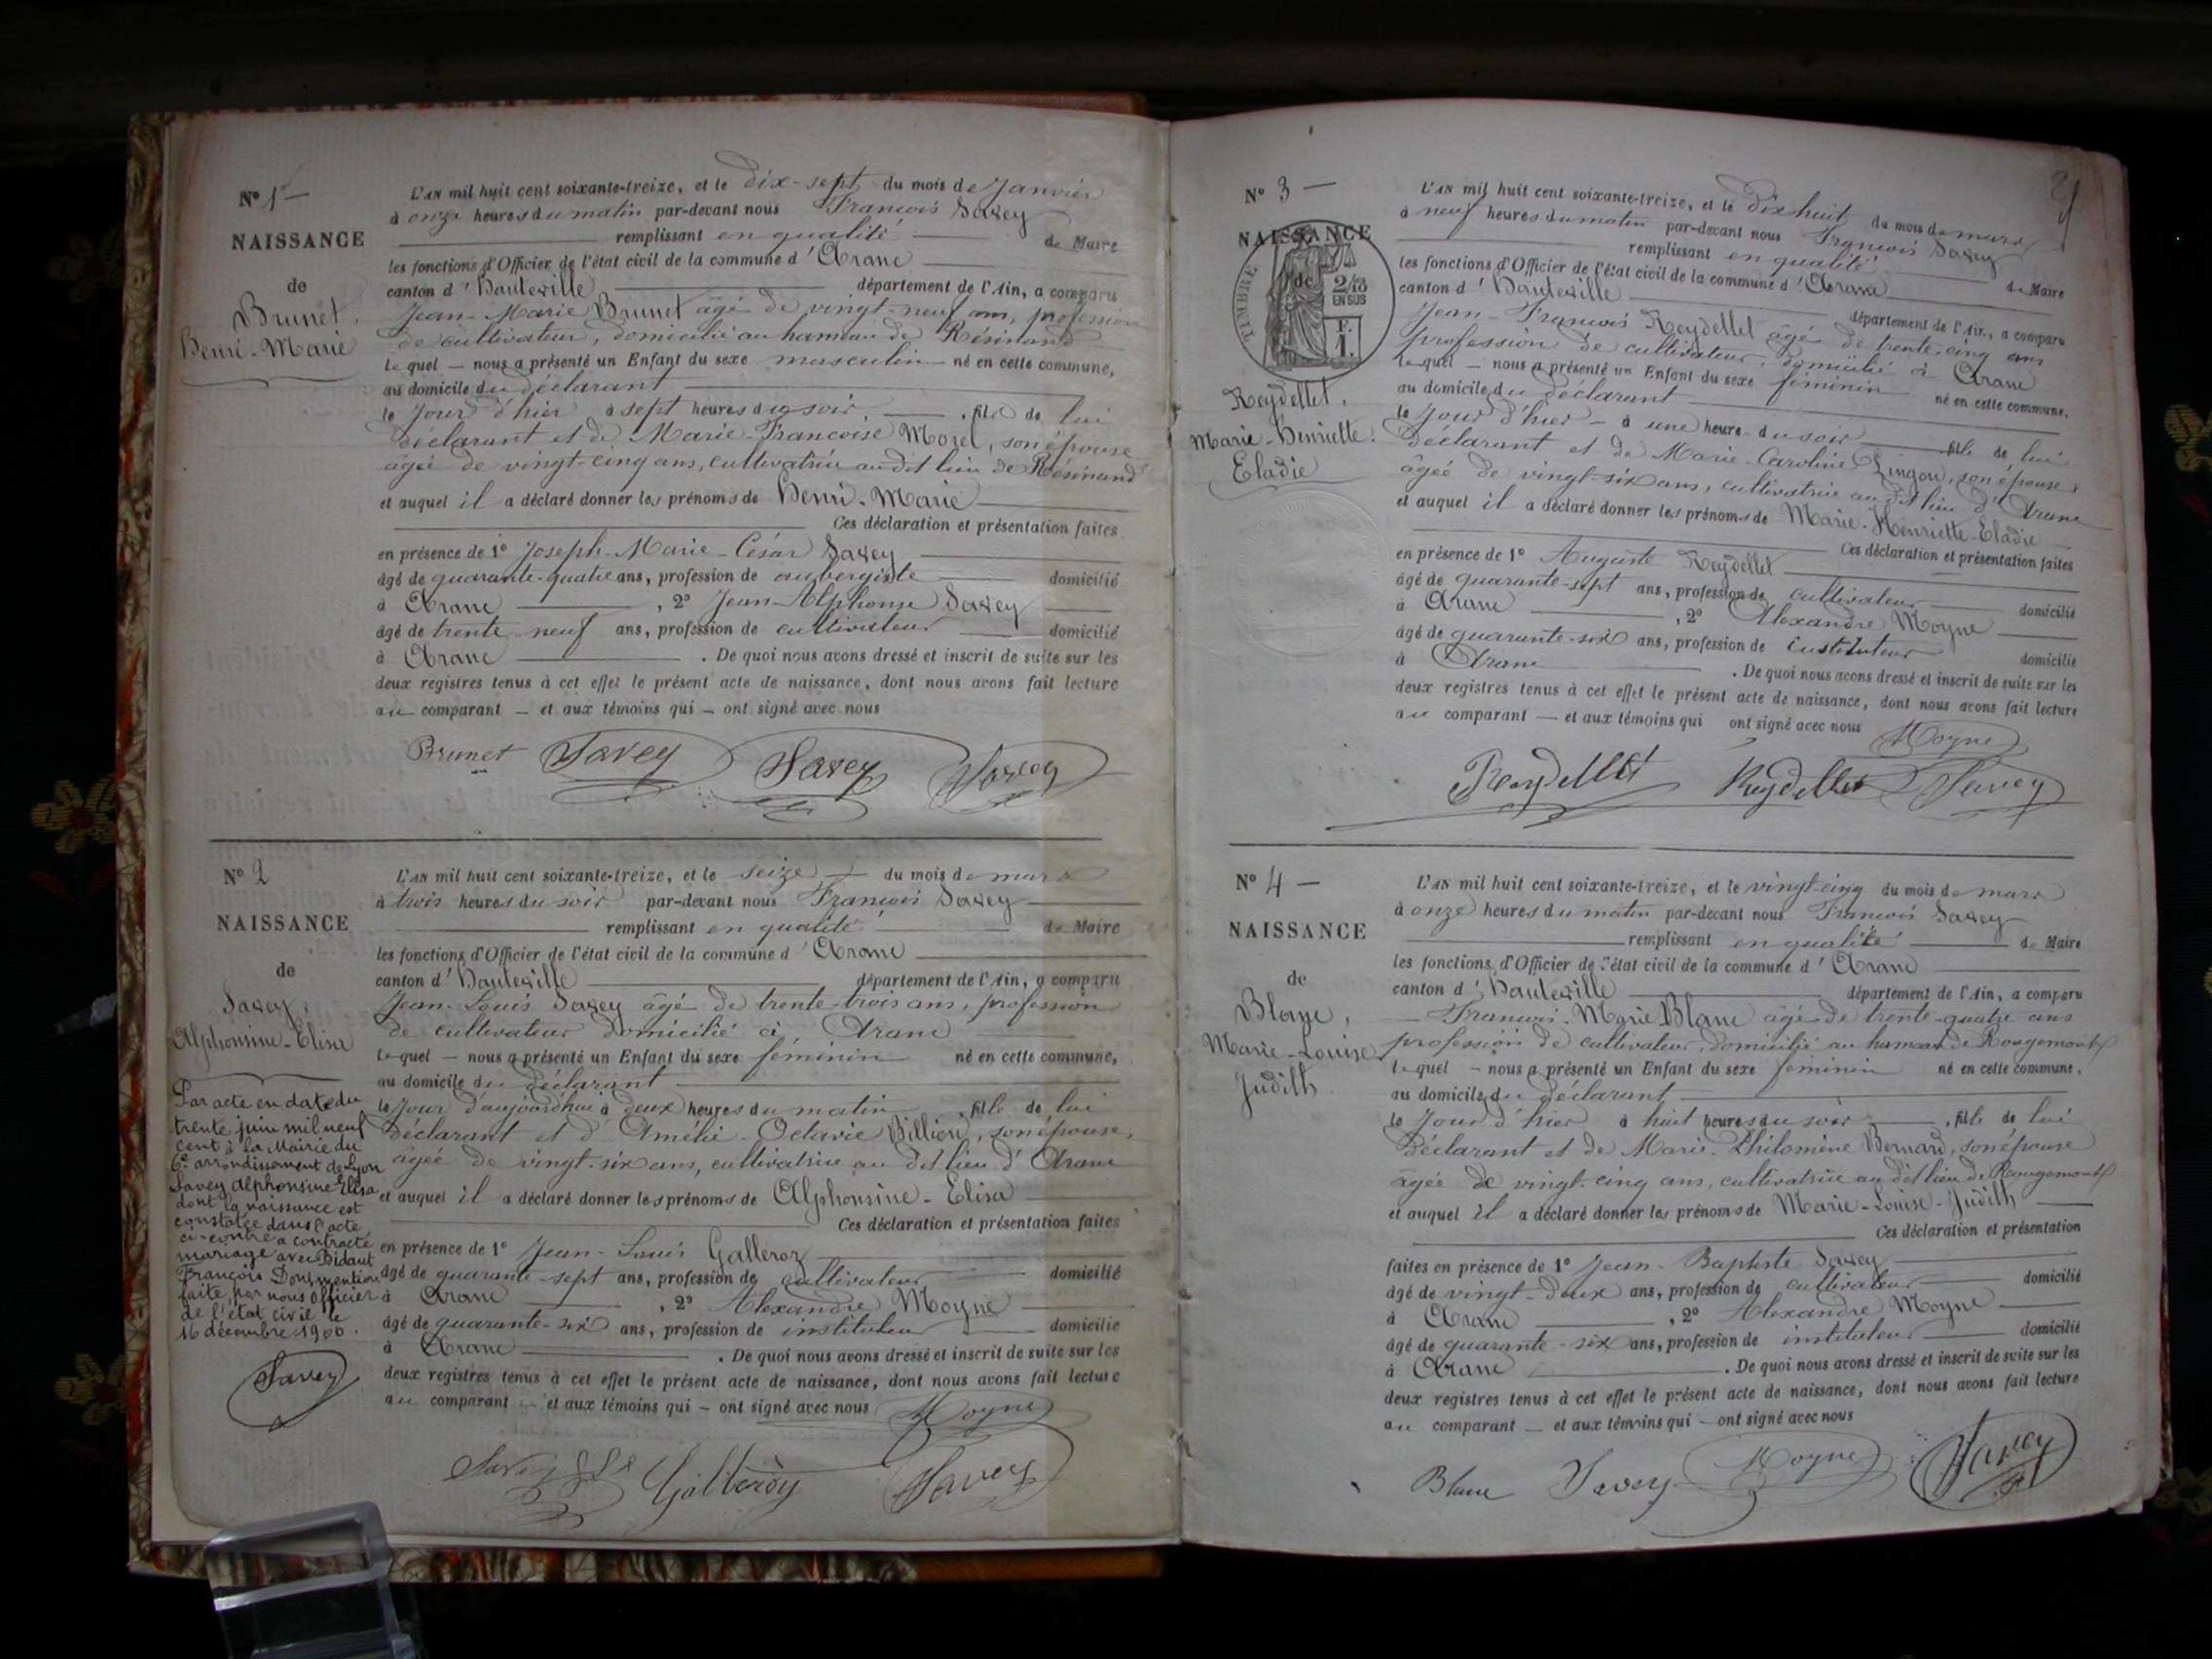 N° 1 —
NAISSANCE
de
Brunet,
Henri-Marie
L'AN mil huit cent soixante-treize, et le dix-sept du mois de Janvier
à onze heures du matin par-devant nous François Savey
remplissant en qualité de Maire
les fonctions d'Officier de l'état civil de la commune d'Aranc
canton d'Hauteville département de l'Ain, a comparu
Jean-Marie Brunet âgé de vingt-neuf ans, profession
de cultivateur, domicilié au hameau de Résinand
lequel — nous a présenté un Enfant du sexe masculin né en cette commune,
au domicile du déclarant
le jour d'hier à sept heures du soir, fils de lui
déclarant et de Marie-Françoise Mozel, son épouse
âgée de vingt-cinq ans, cultivatrice au dit lieu de Résinand
et auquel il a déclaré donner les prénoms de Henri-Marie
Ces déclaration et présentation faites
en présence de 1° Joseph-Marie-César Savey
âgé de quarante-quatre ans, profession de aubergiste domicilié
à Aranc, 2° Jean-Alphonse Savey
âgé de trente-neuf ans, profession de cultivateur domicilié
à Aranc. De quoi nous avons dressé et inscrit de suite sur les
deux registres tenus à cet effet le présent acte de naissance, dont nous avons fait lecture
au comparant — et aux témoins qui — ont signé avec nous
Brunet Savey Savey Savey
N° 2
NAISSANCE
de
Savey,
Alphonsine-Elisa
Par acte en date du
trente juin mil neuf
cent à la Mairie du
6e arrondissement de Lyon
Savey Alphonsine Elisa
dont la naissance est
constatée dans l'acte
ci-contre a contracté
mariage avec Bidaut
François Dont mention
faite par nous Officier
de l'état civil le
16 décembre 1900.
Savey
L'AN mil huit cent soixante-treize, et le seize du mois de mars
à trois heures du soir par-devant nous François Savey
remplissant en qualité de Maire
les fonctions d'Officier de l'état civil de la commune d'Aranc
canton d'Hauteville département de l'Ain, a comparu
Jean-Louis Savey âgé de trente-trois ans, profession
de cultivateur domicilié à Aranc
lequel — nous a présenté un Enfant du sexe féminin né en cette commune,
au domicile du déclarant
le jour d'aujourd'hui à deux heures du matin, fille de lui
déclarant et d'Amélie-Octavie Billion, son épouse,
âgée de vingt-six ans, cultivatrice au dit lieu d'Aranc
et auquel il a déclaré donner les prénoms de Alphonsine-Elisa
Ces déclaration et présentation faites
en présence de 1° Jean-Louis Galleroz
âgé de quarante-sept ans, profession de cultivateur domicilié
à Aranc, 2° Alexandre Moyne
âgé de quarante-six ans, profession de instituteur domicilié
à Aranc. De quoi nous avons dressé et inscrit de suite sur les
deux registres tenus à cet effet le présent acte de naissance, dont nous avons fait lecture
au comparant — et aux témoins qui — ont signé avec nous Moyne
Savey Galleroy Savey
N° 3 —
NAISSANCE
de
TIMBRE
2/10
EN SUS
F.
1.
Reydellet,
Marie-Henriette-
Eladie
L'AN mil huit cent soixante-treize, et le dix huit du mois de mars
à neuf heures du matin par-devant nous François Savey
remplissant en qualité de Maire
les fonctions d'Officier de l'état civil de la commune d'Aranc
canton d'Hauteville département de l'Ain, a comparu
Jean-François Reydellet âgé de trente-cinq ans
profession de cultivateur, domicilié à Aranc
lequel — nous a présenté un Enfant du sexe féminin né en cette commune,
au domicile du déclarant
le jour d'hier — à une heure du soir fille de lui
déclarant et de Marie-Caroline Lingon, son épouse,
âgée de vingt-six ans, cultivatrice au dit lieu d'Aranc
et auquel il a déclaré donner les prénoms de Marie-Henriette-Eladie
Ces déclaration et présentation faites
en présence de 1° Auguste Reydellet
âgé de quarante-sept ans, profession de cultivateur domicilié
à Aranc, 2° Alexandre Moyne
âgé de quarante-six ans, profession de instituteur domicilié
à Aranc. De quoi nous avons dressé et inscrit de suite sur les
deux registres tenus à cet effet le présent acte de naissance, dont nous avons fait lecture
au comparant — et aux témoins qui ont signé avec nous
Moyne
Reydellet Reydellet Savey
N° 4 —
NAISSANCE
de
Blanc,
Marie-Louise
Judith
L'AN mil huit cent soixante-treize, et le vingt-cinq du mois de mars
à onze heures du matin par-devant nous François Savey
remplissant en qualité de Maire
les fonctions d'Officier de l'état civil de la commune d'Aranc
canton d'Hauteville département de l'Ain, a comparu
François-Marie Blanc âgé de trente-quatre ans
profession de cultivateur, domicilié au hameau de Rougemont
lequel — nous a présenté un Enfant du sexe féminin né en cette commune,
au domicile du déclarant
le jour d'hier à huit heures du soir, fille de lui
déclarant et de Marie-Philomène Bernard, son épouse
âgée de vingt-cinq ans, cultivatrice au dit lieu de Rougemont
et auquel il a déclaré donner les prénoms de Marie-Louise-Judith
Ces déclaration et présentation
faites en présence de 1° Jean-Baptiste Savey
âgé de vingt-deux ans, profession de cultivateur domicilié
à Aranc, 2° Alexandre Moyne
âgé de quarante-six ans, profession de instituteur domicilié
à Aranc. De quoi nous avons dressé et inscrit de suite sur les
deux registres tenus à cet effet le présent acte de naissance, dont nous avons fait lecture
au comparant — et aux témoins qui — ont signé avec nous
Blanc Savey Moyne Savey